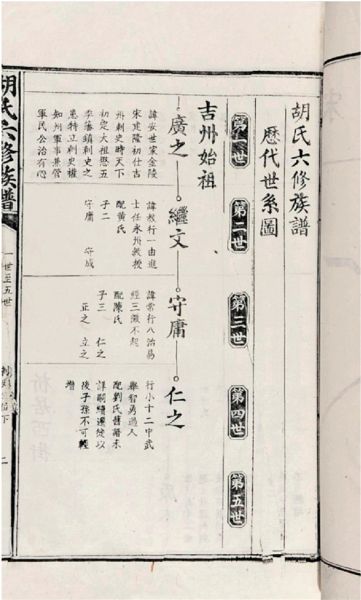 胡氏六修族譜
歷代世系圖
第一世
第二世
第三世
第四世
第五世
吉州始祖
廣之
繼文
守庸
仁之
諱安世家金陵
宋建隆初仕吉
州刺史時天下
初定大祖懲五
季藩鎮刺史之
患特立刺史權
知州軍事兼管
軍民公治有心
諱敖行一由進
士任永州教授
配黃氏
子二
守庸 守成
諱常行八治易
經三徵不起
配陳氏
子三 仁之
正之 立之
行小十二中武
舉智勇過人
配劉氏舊譜未
詳嗣續遷徙以
後子孫不可輕
增
胡氏六修族譜
一世至五世